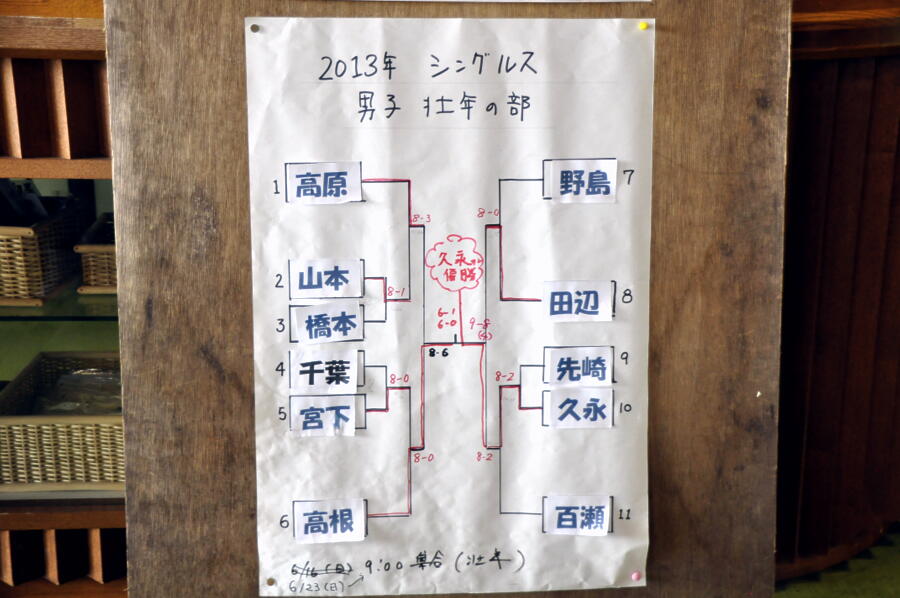 2013年 シングルス
男子 壮年の部
1 高原
2 山本
3 橋本
4 千葉
5 宮下
6 高根
8-3
8-1
8-0
8-0
8-6
久永
優勝
6-1
6-0
9-8
8-0
8-2
8-2
野島 7
田辺 8
先崎 9
久永 10
百瀬 11
6/16(日) 9:00 集合 (壮年)
6/23(日)